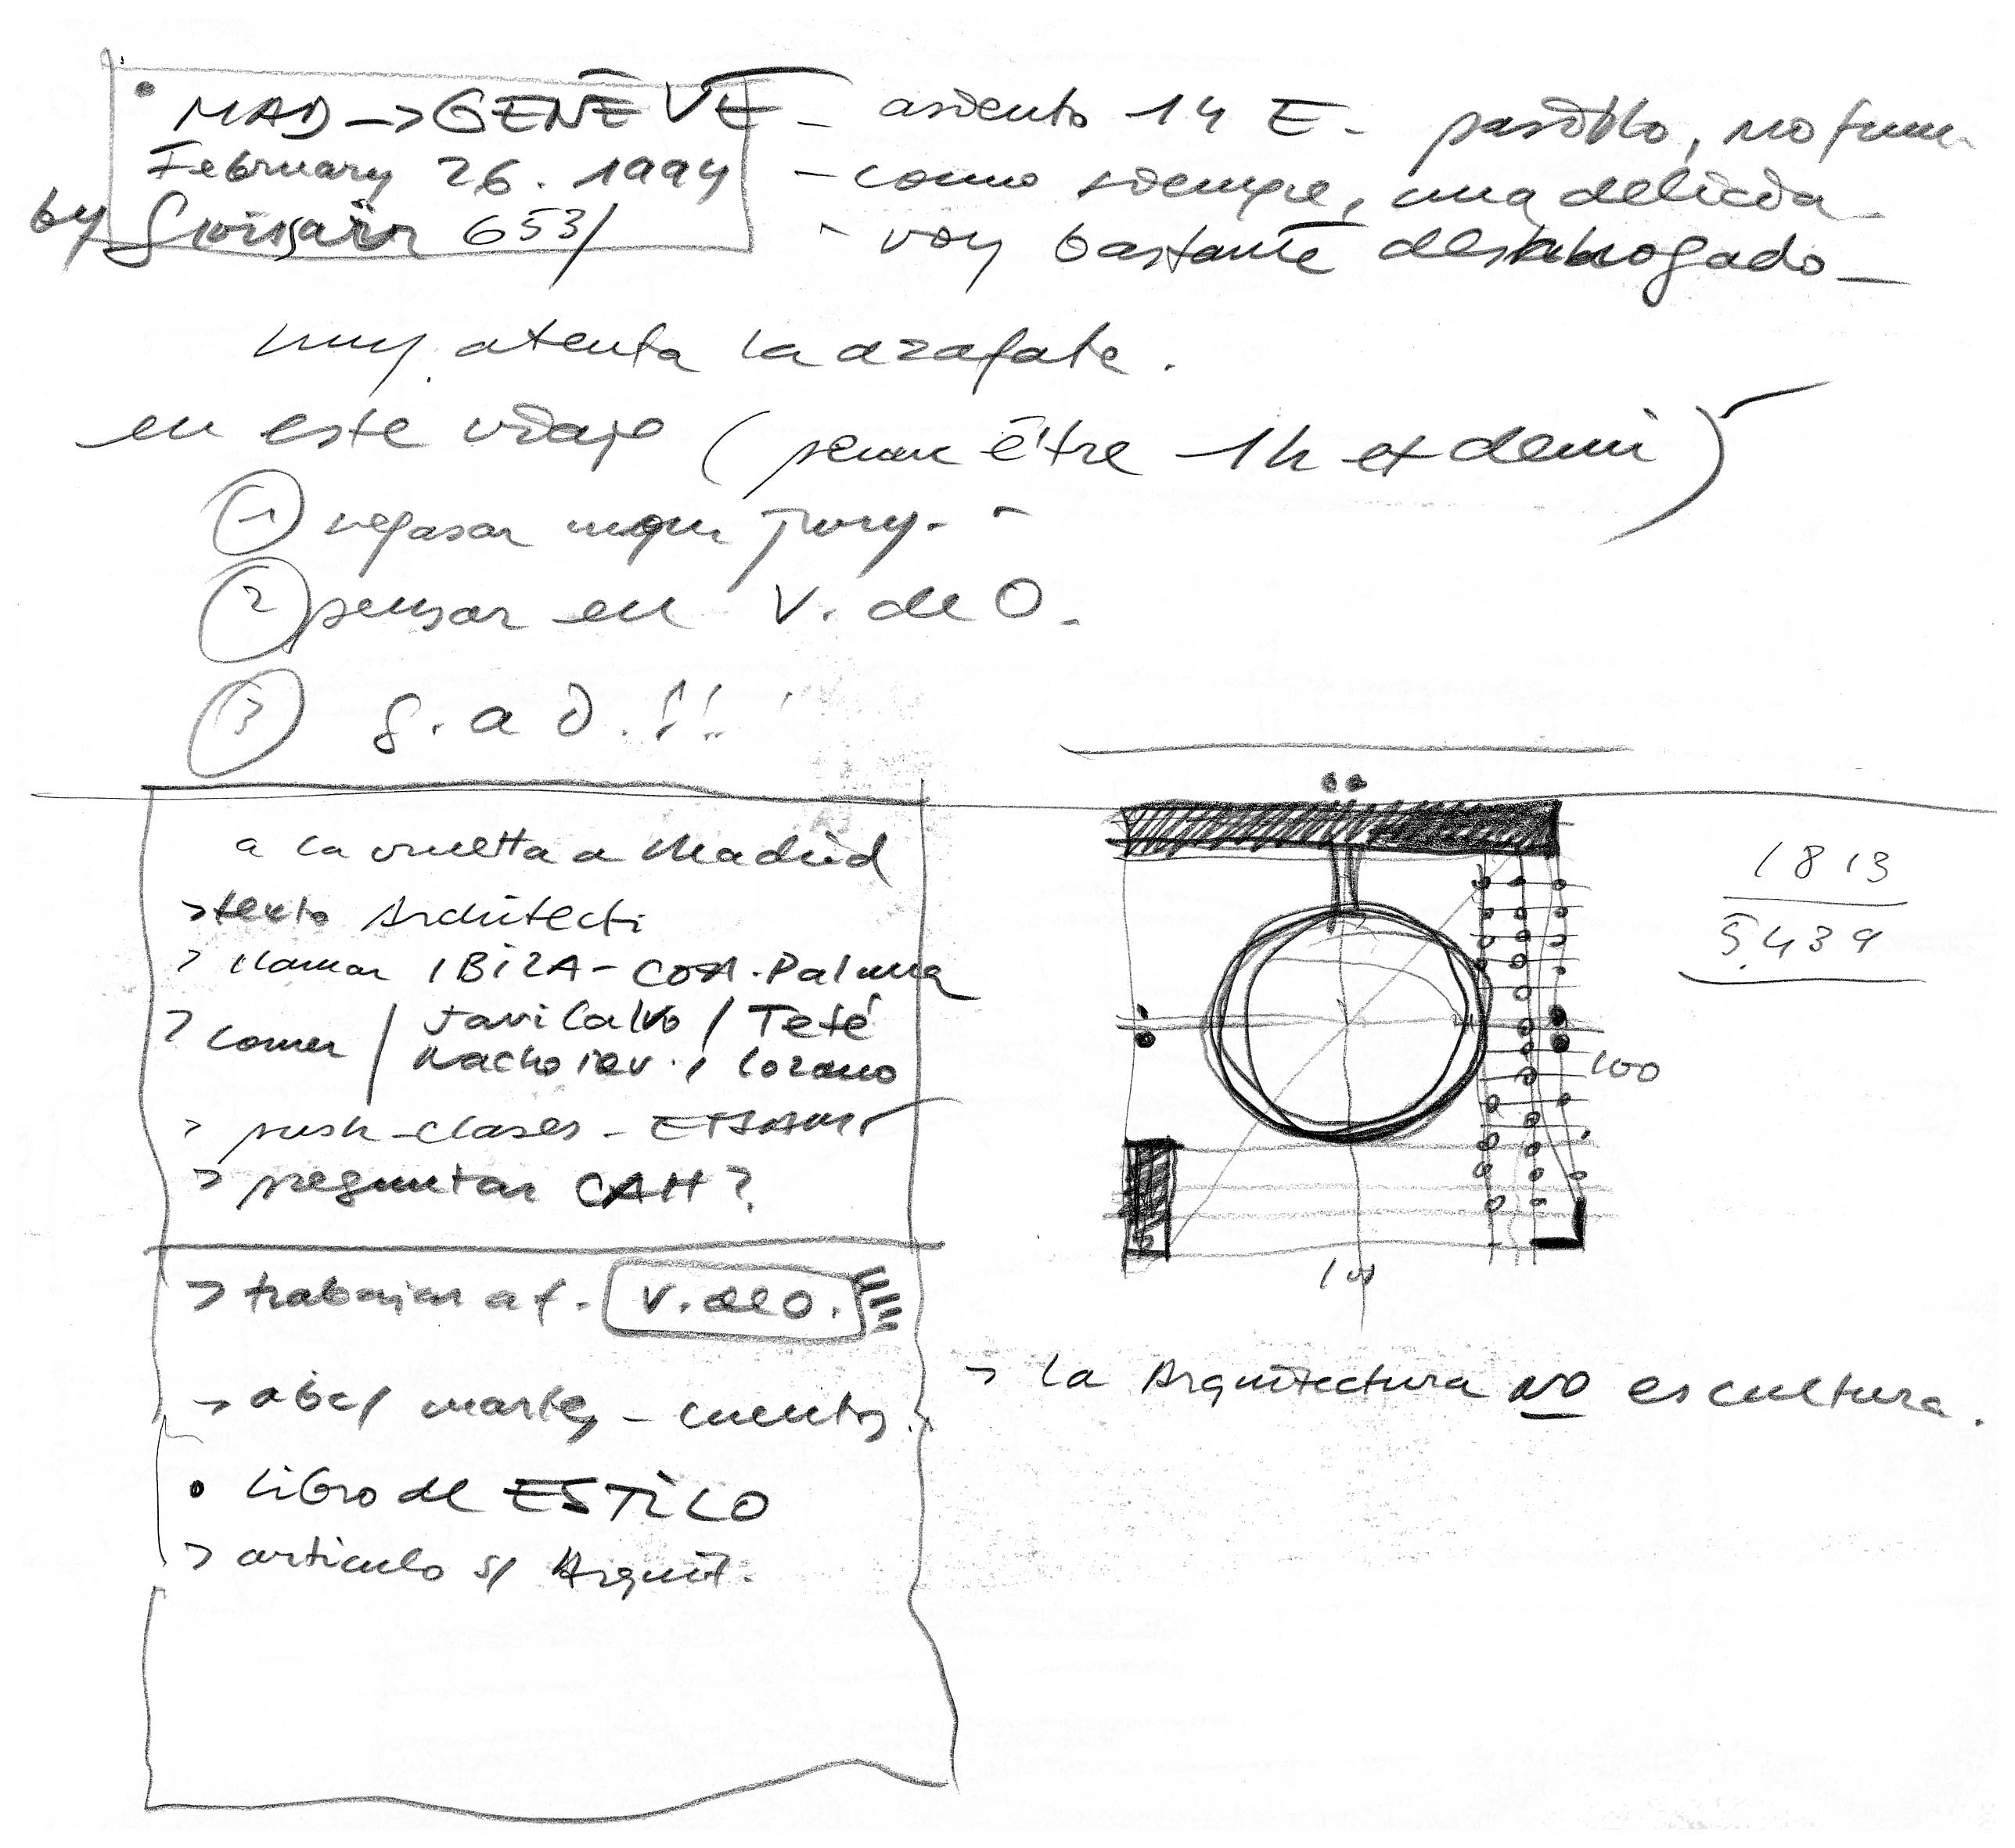 MAD → GENÈVE - asiento 14 E - pasillo, no fum.
February 26. 1994 - como siempre, una delicia.
by Swissair 653/ - voy bastante desahogado -
muy atenta la azafata.
en este viaje (peut être 1h et demi)
① repasar jury.
② pensar en V. de O.
③ S. a D.!!
a la vuelta a Madrid
> texto Architecti
> llamar IBIZA - COA. Palma
> comer / Javi Calvo / Teté
Nacho / Lozano
> push-clases - ETSAM
> preguntar CAH?
> trabajar a f. V. de O.
> abc/ martes - cuentos.
• Libro de ESTILO
> artículo s/ Arquit.
1813
5.439
100
100
> La Arquitectura NO es cultura.